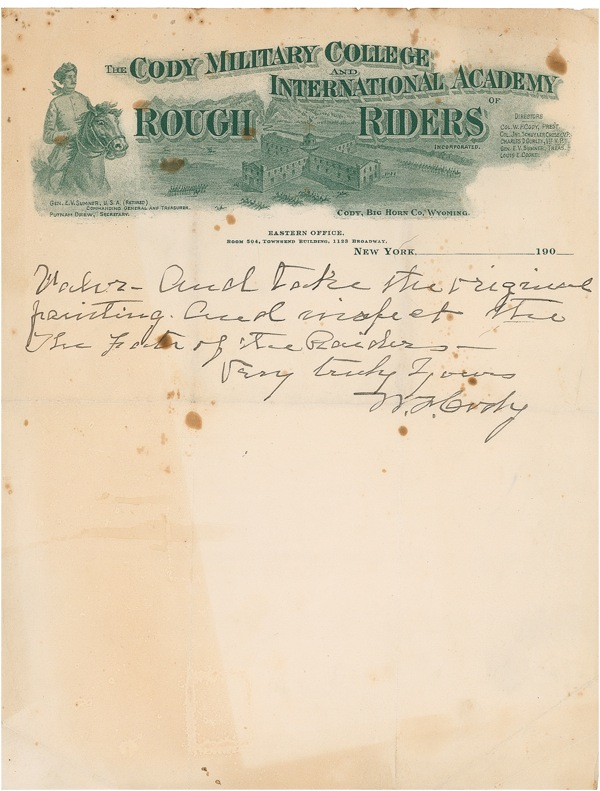 THE CODY MILITARY COLLEGE
AND
INTERNATIONAL ACADEMY
OF
ROUGH RIDERS
INCORPORATED.
DIRECTORS
COL. W. F. CODY, PREST.
CHARLES D. GURLEY, 1ST V. P.
GEN. E. V. SUMNER, TREAS.
LOUIS E. COOKE.
GEN. E. V. SUMNER, U.S.A. (RETIRED)
COMMANDING GENERAL AND TREASURER.
PUTNAM DREW, SECRETARY.
CODY, BIG HORN CO, WYOMING.
EASTERN OFFICE.
ROOM 504, TOWNSEND BUILDING, 1123 BROADWAY.
NEW YORK, 190
And take the original
painting. And inspect the
The Fate of the Raiders —
Very truly Yours
W. F. Cody